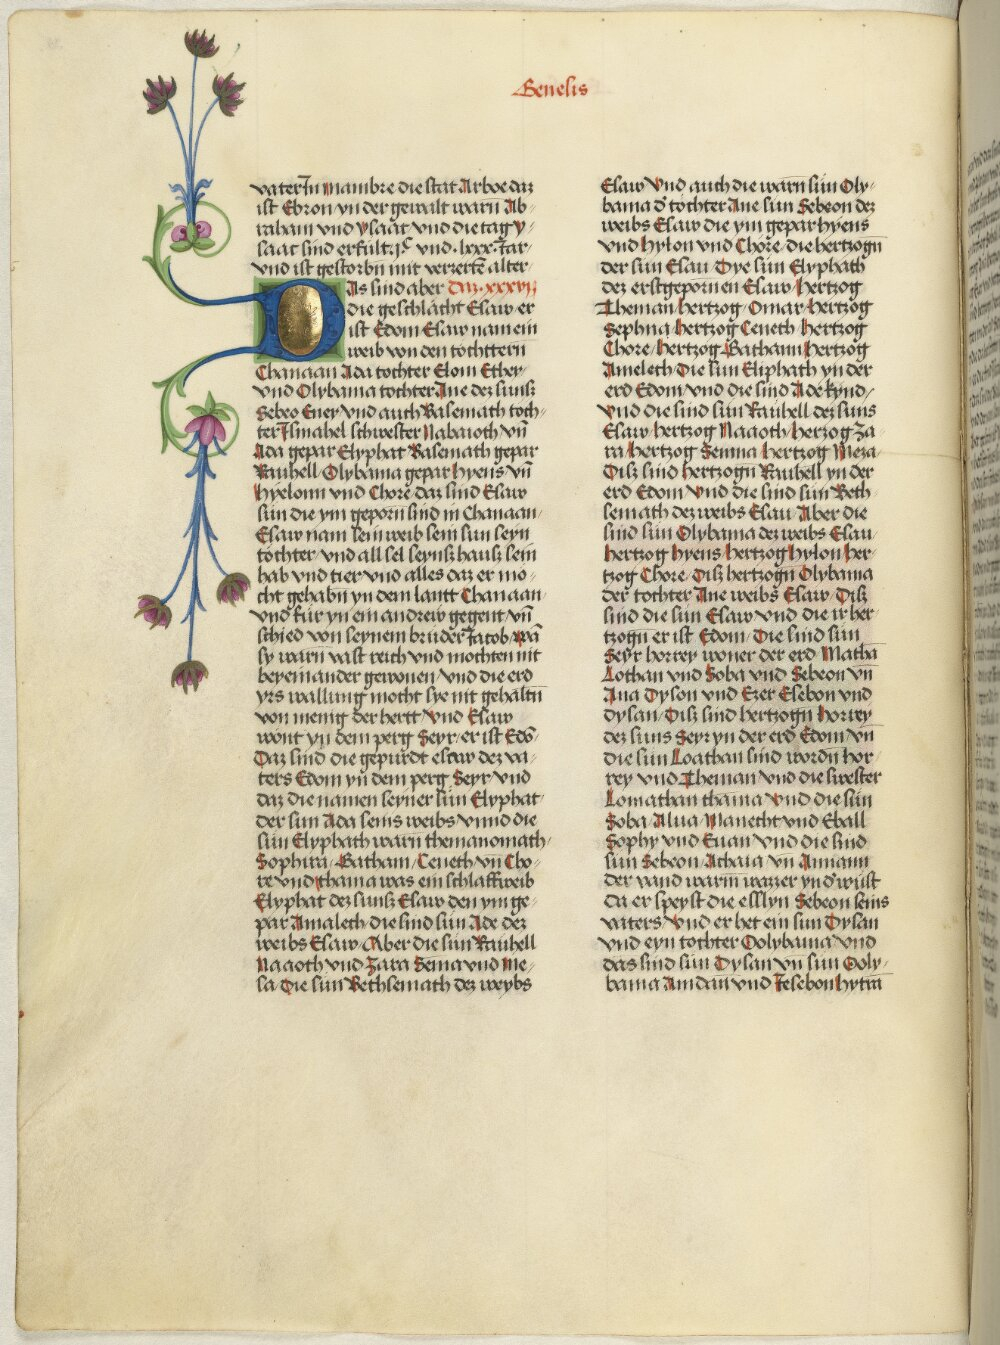 Genesis
vater In mambre die stat Arboe daz
ist Ebron yn der gewalt warn̄ Ab⸗
raham vnd ysaac vnd die tag y⸗
saac sind erfult .jᶜ. vnd .lxxx. Jar⸗
vnd ist gestorbn̄ mit verzertē alter⸗
As sind aber Daz .xxxvj
die geschlächt Esaw er
ist Edom Esaw nam ein
weib von den töchttern
Chanaan Ada tochter Elom Ethey⸗
vnd Olybama tochter Ane dez suns
Sebeo Euey vnd auch Basemath toch⸗
ter Ismahel schwester Nabaioth vn̄
Ada gepar Elyphat Basemath gepar
Rauhell Olybama gepar hyens vn̄
hyelom vnd Chore daz sind Esaw
sün die ym geporn̄ sind in Chanaan⸗
Esaw nam sein weib sein sun seyn
töchter vnd all sel seyns hauss sein
hab vnd tier vnd alles daz er mo⸗
cht gehabn̄ yn dem lantt Chanaan⸗
vnd für yn ein andrew gegent vn̄
schied von seynem bruder Jacob wā
sy warn̄ vast reich vnd mochten nit
beyeinander gewonen vnd die erd
yrs wallung mocht sye nit gehaltn̄
von menig der hertt vnd Esaw
wont yn dem perg Seyr er ist Edō⸗
Daz sind die gepürdt esaw dez va⸗
ters Edom yn dem perg Seyr vnd
daz die namen seyner sün Elyphat⸗
der sun Ada seins weibs vnnd die
sün Elyphath warn̄ theman omath⸗
Sophira Gatham Ceneth vn̄ Cho⸗
re vnd thama was ein schlaffweib
Elyphat dez suns Esaw den ym ge⸗
par Amalech die sind sün Ade dez
weibs Esaw Aber die sün Rauhell
Naaoth vnd Zara Sema vnd me⸗
sa Die sün Bethsemath dez weybs
Esaw Vnd auch die warn sün Oly⸗
bama d' tochter Ane sun Sebeon dez
weibs Esaw die ym gepar hyens
vnd hylon vnd Chore die hertzogn̄
der sün Esau Dye sün Elyphath
dez erstgepornen Esaw hertzog
Theman hertzog Omar hertzog
Sephna hertzog Ceneth hertzog
Chore hertzog Gatham hertzog
Ameleth Die sün Eliphath yn der
erd Edom vnd die sind Ade kynd⸗
vnd die sind sün Rauhell dez suns
Esaw hertzog Naaoth herzog Za⸗
ra hertzog Semna hertzog Meza
Diss sind hertzogn̄ Rauhell yn der
erd Edom vnd die sind sün Beth⸗
semath dez weibs Esau Aber die
sind sün Olybama dez weibs Esau
hertzog hyens hertzog hylon her⸗
tzog Chore Diss hertzogn̄ Olybama
der tochter Ane weibs Esaw Diss
sind die sün Esaw vnd die ir her⸗
tzogn̄ er ist Edom Die sind sün
Seyr horrey woner der erd Matha
Lothan vnd Soba vnd Sebeon vn̄
Ana Dyson vnd Ezer Esebon vnd
dysan Diss sind hertzogn̄ horrey
dez suns Seyr yn der erd Edom vn̄
die sün Loathan sind wordn̄ hor⸗
rey vnd Theman vnd die swester
Lomathan thama vnd die sün
Soba Alua Manecht vnd Eball
Sophy vnd Euan vnd die sind
sün Sebeon Achaia vn̄ Annam
der vand warm wazzer ynd' wüst
da er speyst die essllyn Sebeon seins
vaters vnd er het ein sun Dysan
vnd eyn tochter Oolybama vnd
das sind sün Dysan vn̄ sün Ooly⸗
bama Amdan vnd Jesebon hytra